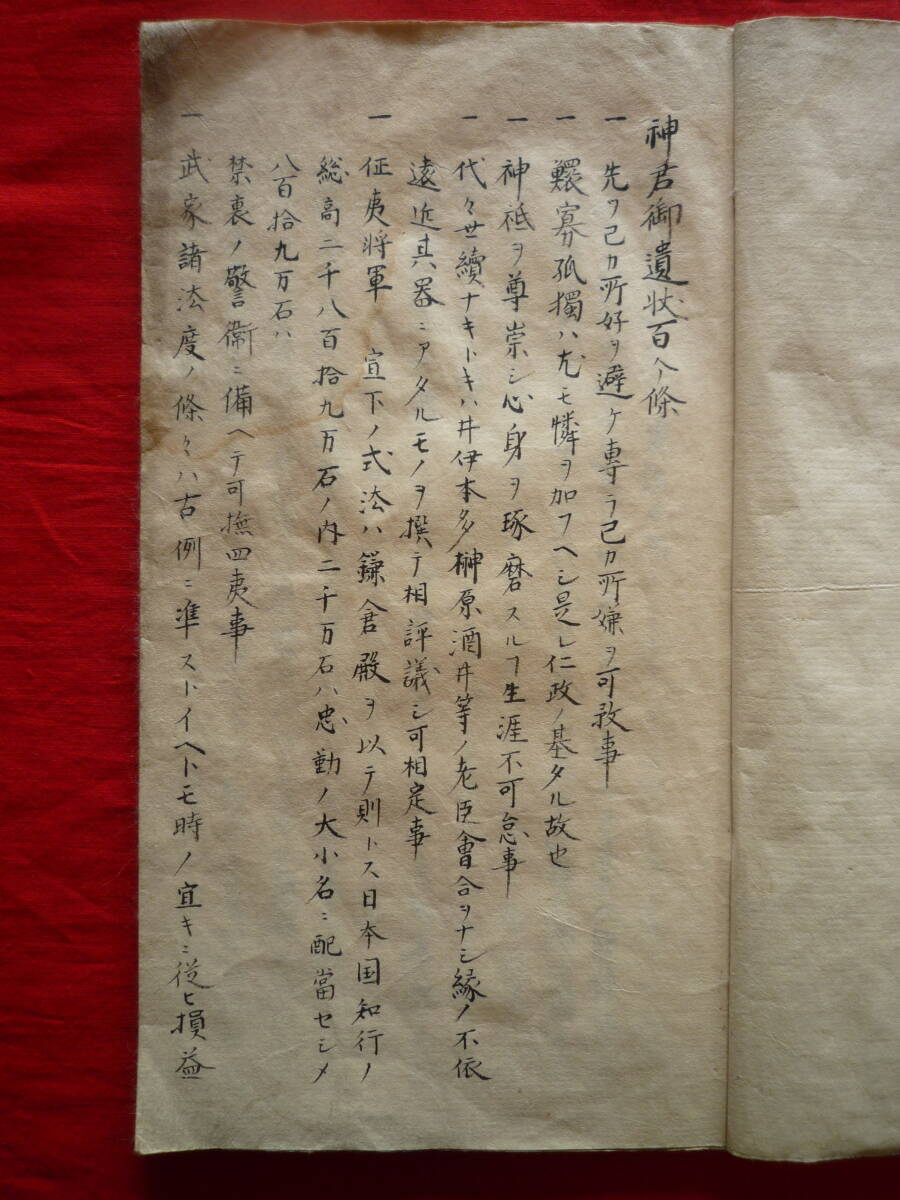 神君御遺状百ヶ條
一 先ヲ己カ所好ヲ避ケ専ラ己カ所嫌ヲ可敢事
一 鰥寡孤獨ハ尤モ憐ヲ加フヘシ是レ仁政ノ基タル故也
一 神祇ヲ尊崇シ心身ヲ琢磨スルヿ生涯不可怠事
一 代々世續ナキトキハ井伊本多榊原酒井等ノ老臣會合ヲナシ縁ノ不依
遠近其器ニアタルモノヲ撰テ相評議シ可相定事
一 征夷将軍 宣下ノ式法ハ鎌倉殿ヲ以テ則トス日本国知行ノ
総高二千八百拾九万石ノ内二千万石ハ忠勤ノ大小名ニ配當セシメ
八百拾九万石ハ
禁裏ノ警衛ニ備ヘテ可撫四夷事
一 武家諸法度ノ條々ハ古例ニ準ストイヘトモ時ノ宜キニ従ヒ損益